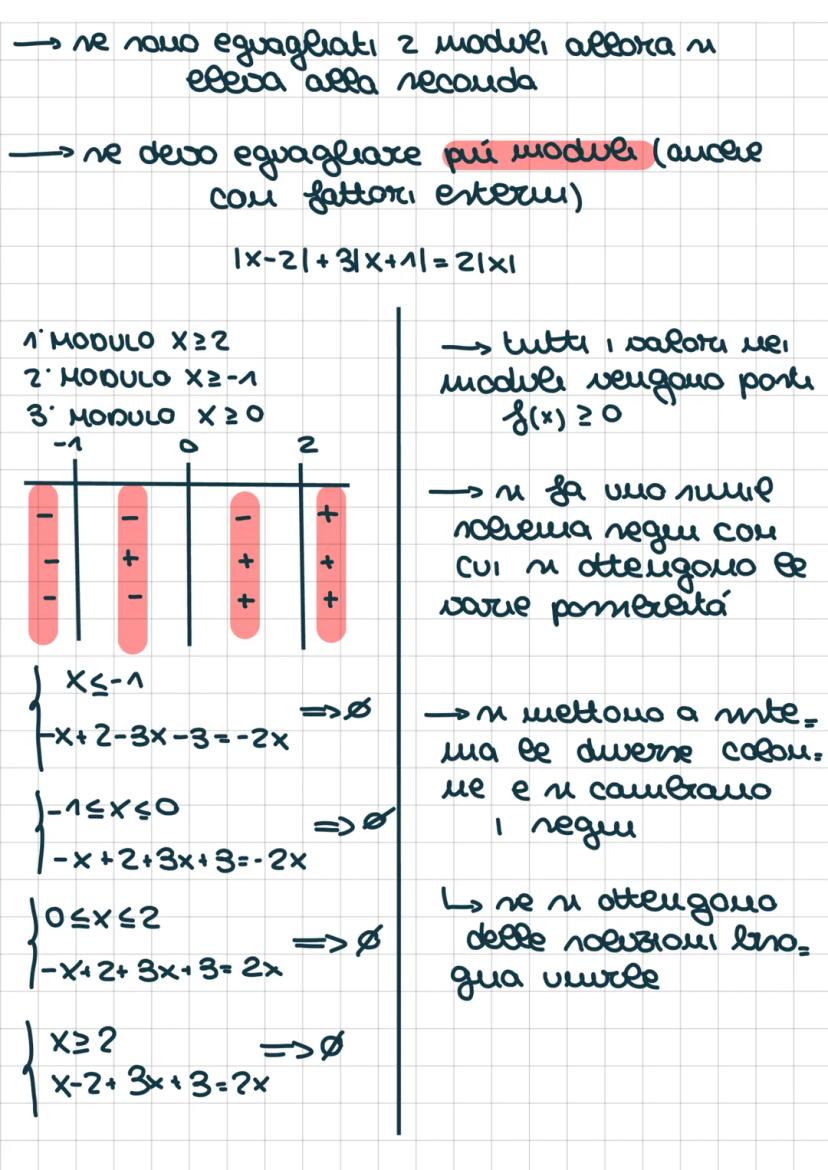 → se sono eguagliati 2 moduli allora si
eleva alla seconda
→ se devo eguagliare più moduli (anche
con fattori esterni)
|x-2|+3|x+1|=2|x|
1° MODULO X≥2
2° MODULO X≥-1
3° MODULO X≥0
-1 0 2
- - - +
- + + +
- - + +
x≤-1
-x+2-3x-3=-2x ⇒ ∅
-1≤x≤0
-x+2+3x+3=-2x ⇒ ∅
0≤x≤2
-x+2+3x+3=2x ⇒ ∅
x≥2
x-2+3x+3=2x ⇒ ∅
→ tutti i valori nei
moduli vengono posti
f(x)≥0
→ si fa uno simil
schema segni con
cui si ottengono le
varie possibilitá
→ si mettono a siste=
ma le diverse colon=
ne e si cambiano
i segni
↳ se si ottengono
delle soluzioni biso=
gna unirle